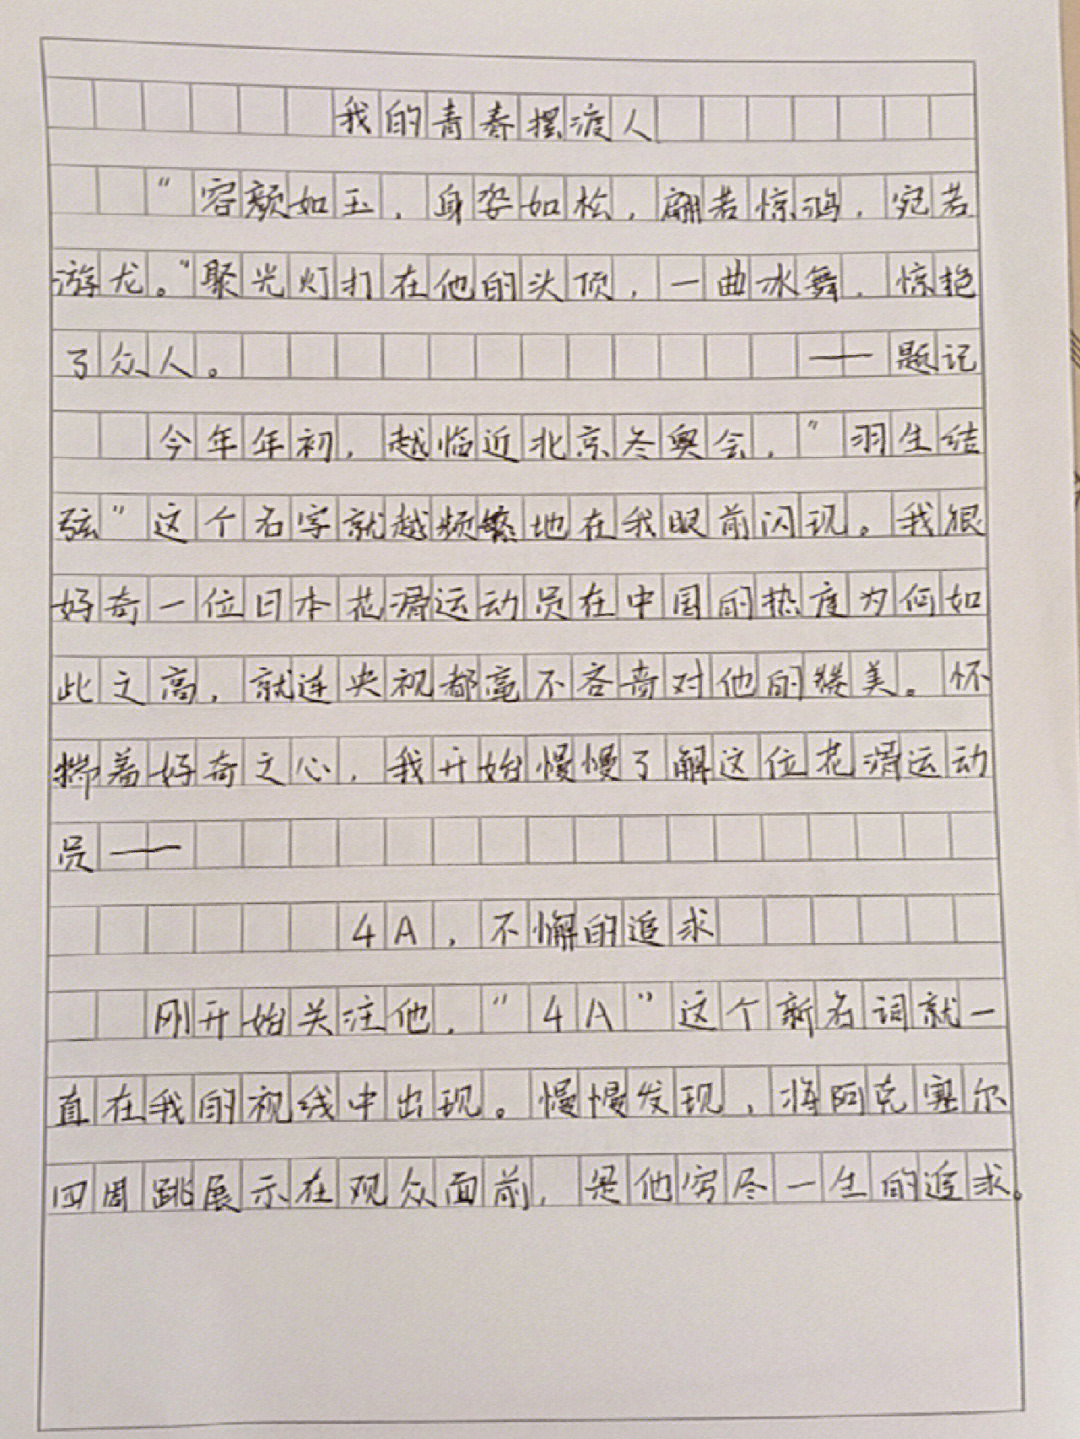 我的青春摆渡人
“容颜如玉，身姿如松，翩若惊鸿，宛若
游龙。”聚光灯打在他的头顶，一曲冰舞，惊艳
了众人。——题记
今年年初，越临近北京冬奥会，“羽生结
弦”这个名字就越频繁地在我眼前闪现。我很
好奇一位日本花滑运动员在中国的热度为何如
此之高，就连央视都毫不吝啬对他的赞美。怀
揣着好奇之心，我开始慢慢了解这位花滑运动
员——
4A，不懈的追求
刚开始关注他，“4A”这个新名词就一
直在我的视线中出现。慢慢发现，将阿克塞尔
四周跳展示在观众面前，是他穷尽一生的追求。